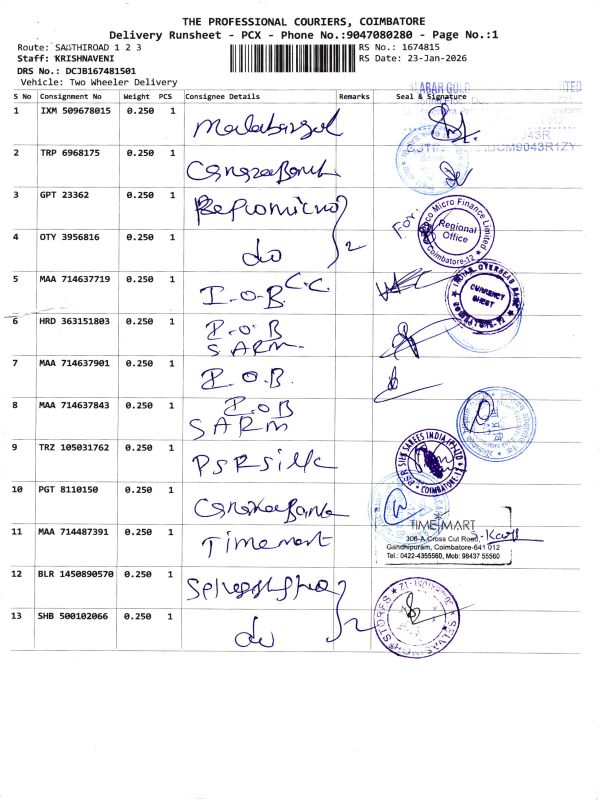 THE PROFESSIONAL COURIERS, COIMBATORE
Delivery Runsheet - PCX - Phone No.:9047080280 - Page No.:1
Route: SAGTHIROAD 1 2 3
RS No.: 1674815
Staff: KRISHNAVENI
RS Date: 23-Jan-2026
DRS No.: DCJB167481501
Vehicle: Two Wheeler Delivery
S No Consignment No Weight PCS Consignee Details Remarks Seal & Signature
1 IXM 509678015 0.250 1 Malabargol
2 TRP 6968175 0.250 1 CanaraBank
3 GPT 23362 0.250 1 Repcomicro
For.
Repco Micro Finance Limited
Regional Office
Coimbatore-12
4 OTY 3956816 0.250 1 do 2
5 MAA 714637719 0.250 1 I.O.B C.C.
INDIAN OVERSEAS BANK
CURRENCY CHEST
6 HRD 363151803 0.250 1 I.O.B
SARM.
7 MAA 714637901 0.250 1 I.O.B.
8 MAA 714637843 0.250 1 I.O.B
SARM
9 TRZ 105031762 0.250 1 PSRsilk
PSR SILK SAREES INDIA (P) LTD
COIMBATORE-12
10 PGT 8110150 0.250 1 CanaraBank
11 MAA 714487391 0.250 1 Timemart
TIME MART
306-A Cross Cut Road,
Gandhipuram, Coimbatore-641 012
Tel.: 0422-4355560, Mob: 98437 55560
12 BLR 1450890570 0.250 1
13 SHB 500102066 0.250 1 do 2
STORES